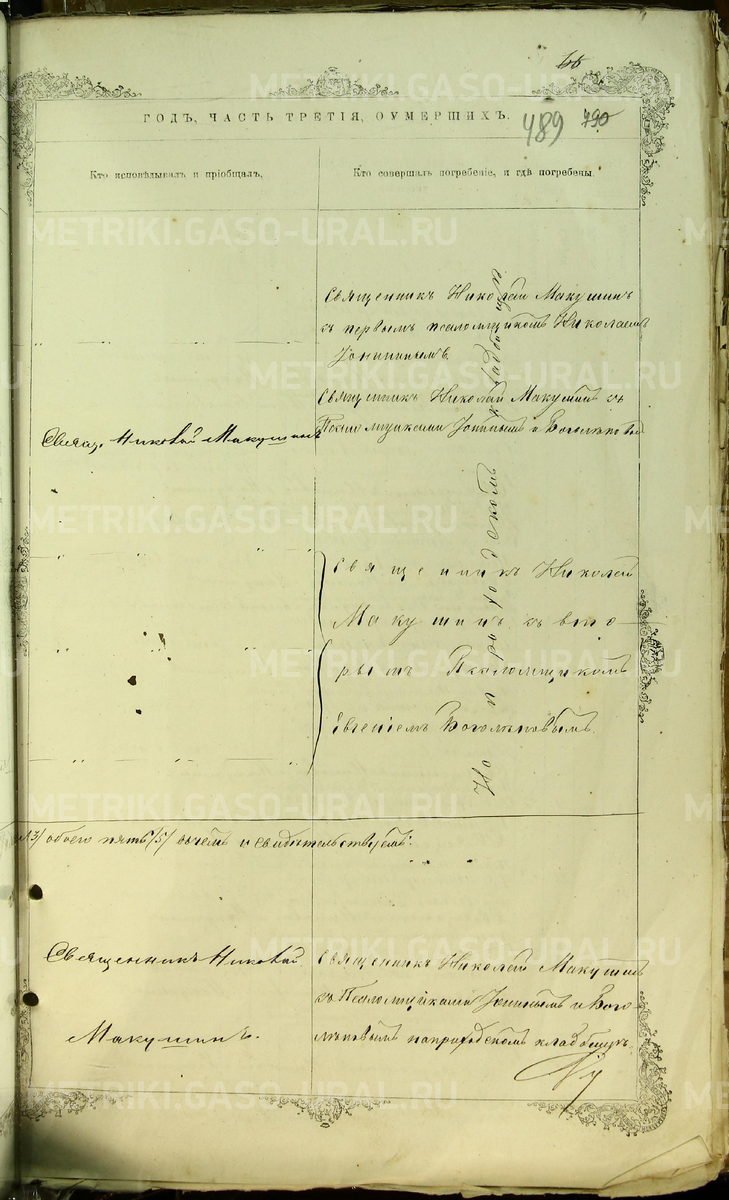 66
ГОДЪ, ЧАСТЬ ТРЕТІЯ, О УМЕРШИХЪ.
489 790
Кто исповѣдывалъ и пріобщалъ.
Кто совершалъ погребеніе, и гдѣ погребены.
Священникъ Николай Макушинъ
съ первымъ псаломщикомъ Николаемъ
Іонинымъ
Священникъ Николай Макушинъ съ
Псаломщиками Іонинымъ и Боголѣповымъ
Свящ. Николай Макушинъ
Священникъ Николай
Макушинъ съ вто-
рымъ Псаломщикомъ
Евгеніемъ Боголѣповымъ
На приходскомъ кладбищѣ
/3/ обоего пять /5/ въ чемъ и свидѣтельствуемъ:
Священникъ Николай
Макушинъ.
Священникъ Николай Макушинъ
съ Псаломщиками Іонинымъ и Бого-
лѣповымъ на приходскомъ кладбищѣ
METRIKI.GASO-URAL.RU